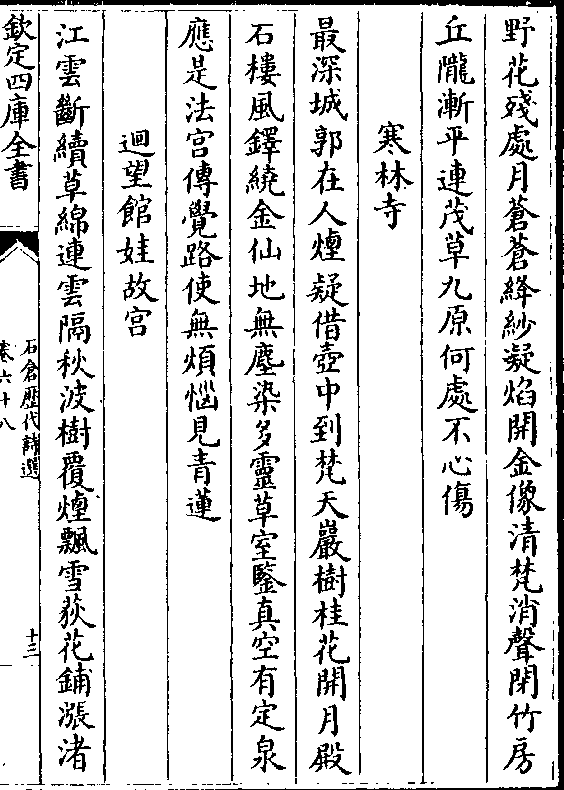 野花殘處月蒼蒼絳紗凝焰開金像清梵消聲閉竹房
丘隴漸平連茂草九原何處不心傷
寒林寺
最深城郭在人煙疑借壺中到梵天巖樹桂花開月殿
石樓風鐸繞金仙地無塵染多靈草室鑒真空有定泉
應是法宮傳覺路使無煩惱見青蓮
迴望館娃故宮
江雲斷續草綿連雲隔秋波樹覆煙飄雪荻花鋪漲渚
欽定四庫全書
石倉歷代詩選
卷六十八
十三